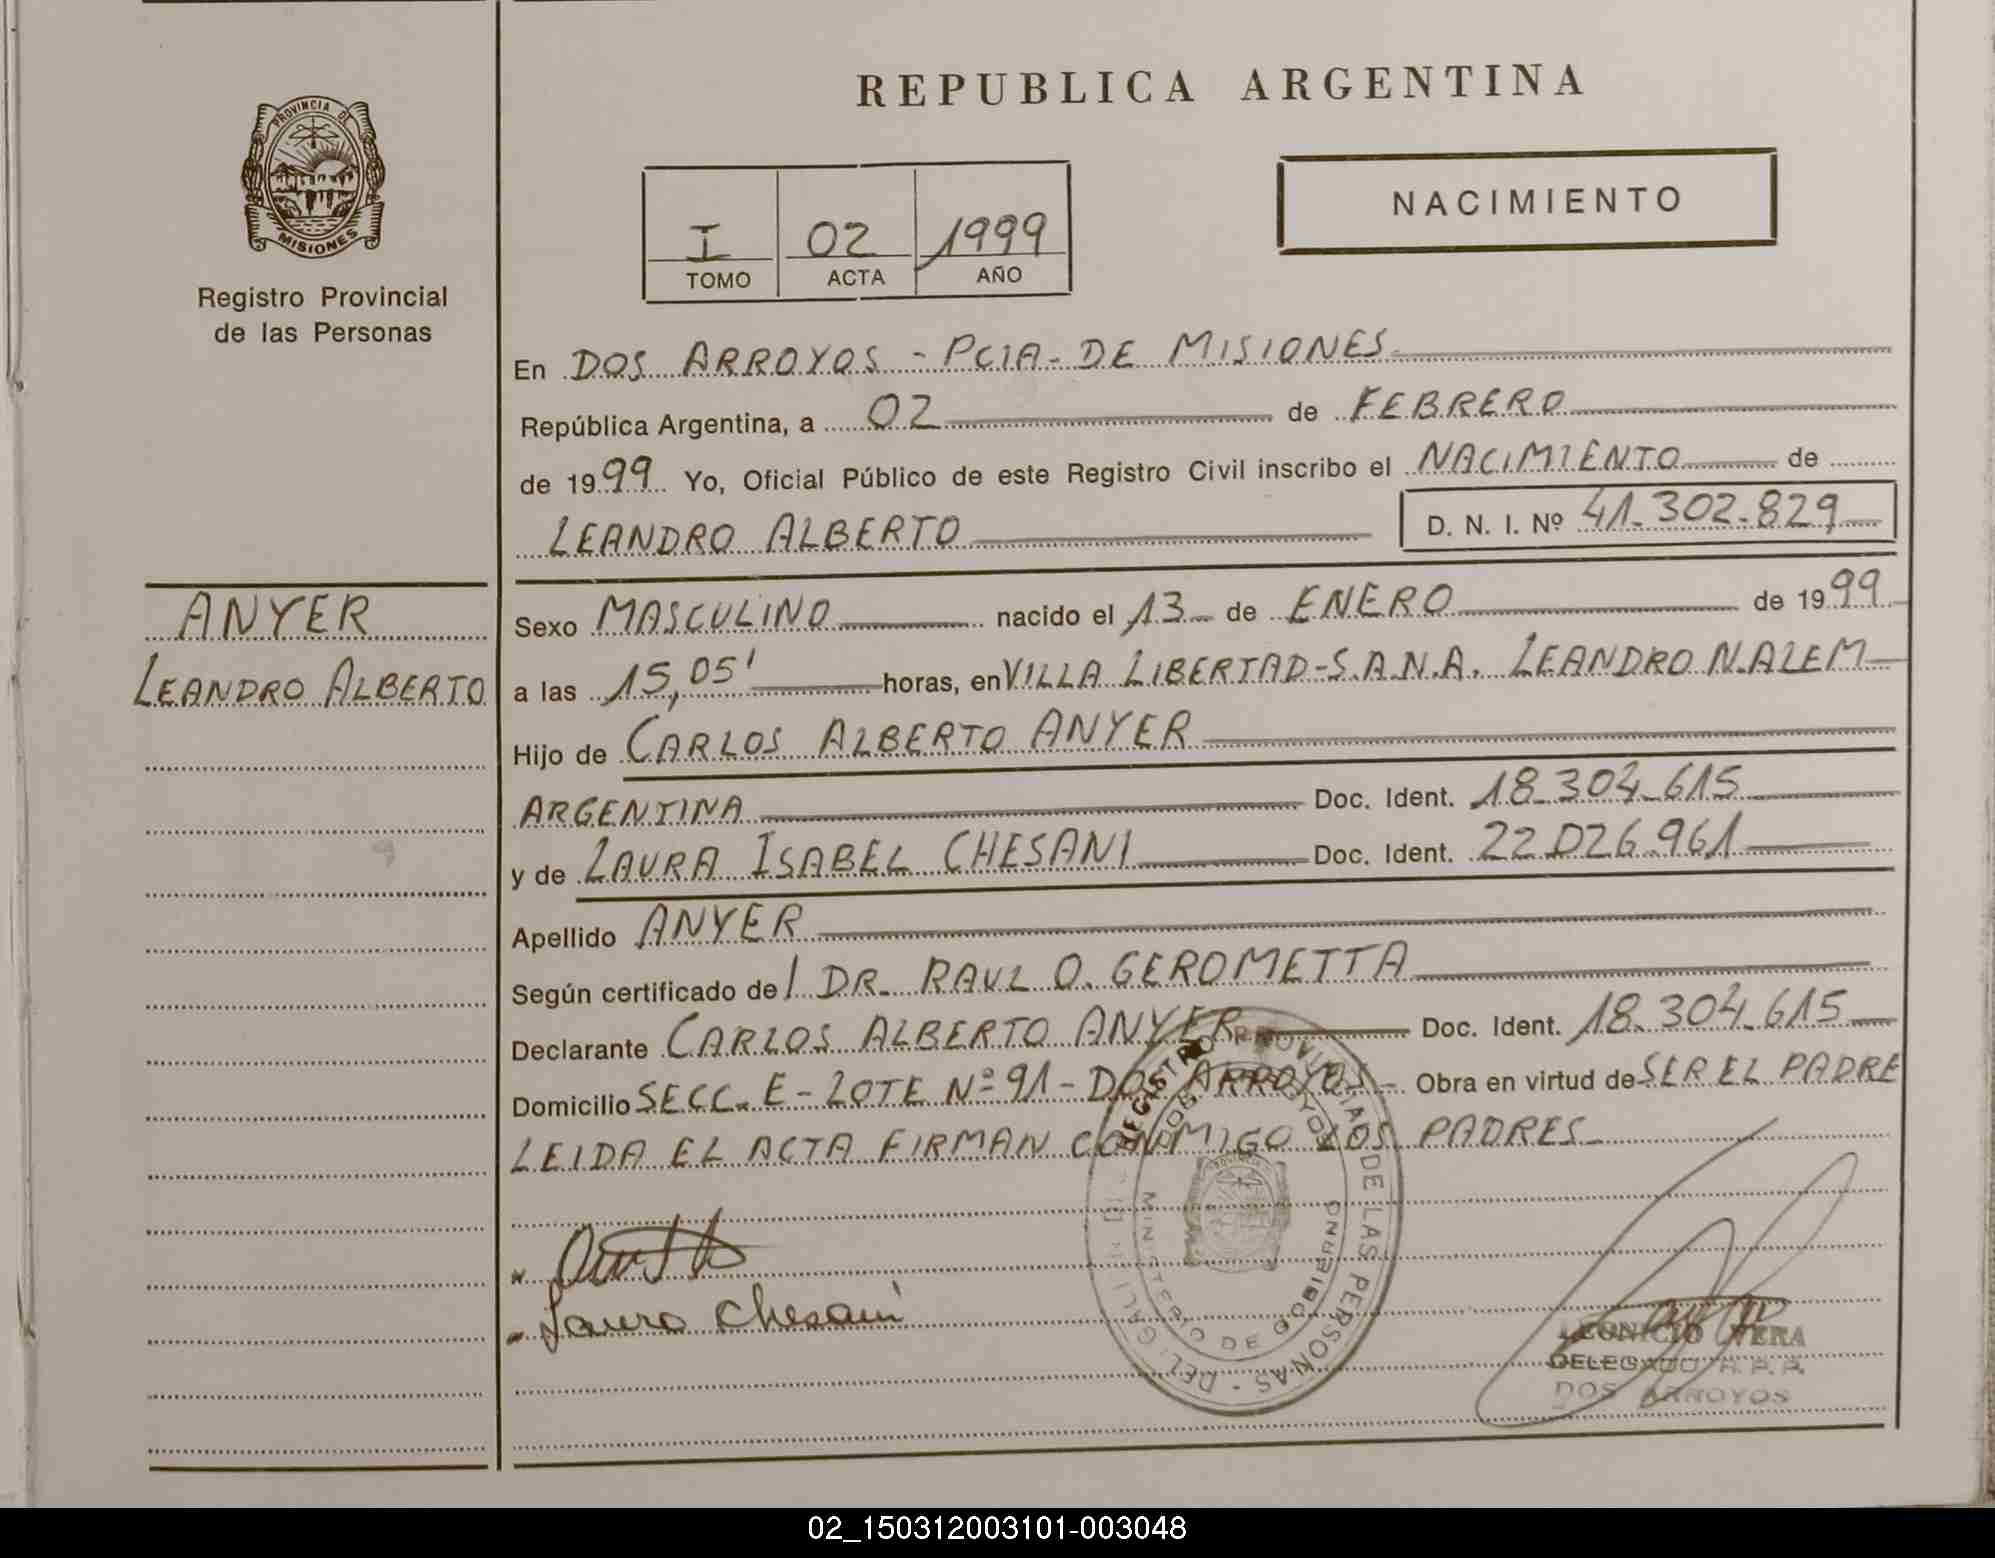 PROVINCIA DE
MISIONES
Registro Provincial
de las Personas
ANYER
LEANDRO ALBERTO
REPUBLICA ARGENTINA
I 02 1999
TOMO ACTA AÑO
NACIMIENTO
En DOS ARROYOS - PCIA- DE MISIONES
República Argentina, a 02 de FEBRERO
de 1999 Yo, Oficial Público de este Registro Civil inscribo el NACIMIENTO de
LEANDRO ALBERTO D. N. I. Nº 41-302-829
Sexo MASCULINO nacido el 13 de ENERO de 1999
a las 15,05' horas, en VILLA LIBERTAD-S.A.N.A. LEANDRO N.ALEM
Hijo de CARLOS ALBERTO ANYER
ARGENTINA Doc. Ident. 18-304-615
y de LAURA ISABEL CHESANI Doc. Ident. 22.026.961
Apellido ANYER
Según certificado del DR. RAUL O. GEROMETTA
Declarante CARLOS ALBERTO ANYER Doc. Ident. 18.304.615
Domicilio SECC. E - LOTE Nº 91 - DOS ARROYOS - Obra en virtud de SER EL PADRE
LEIDA EL ACTA FIRMAN CONMIGO LOS PADRES
Laura Chesani
REGISTRO PROVINCIAL DE LAS PERSONAS
DOS ARROYOS
MINISTERIO DE GOBIERNO
LEONICIO VERA
DELEGADO R.P.P.
DOS ARROYOS
02_150312003101-003048